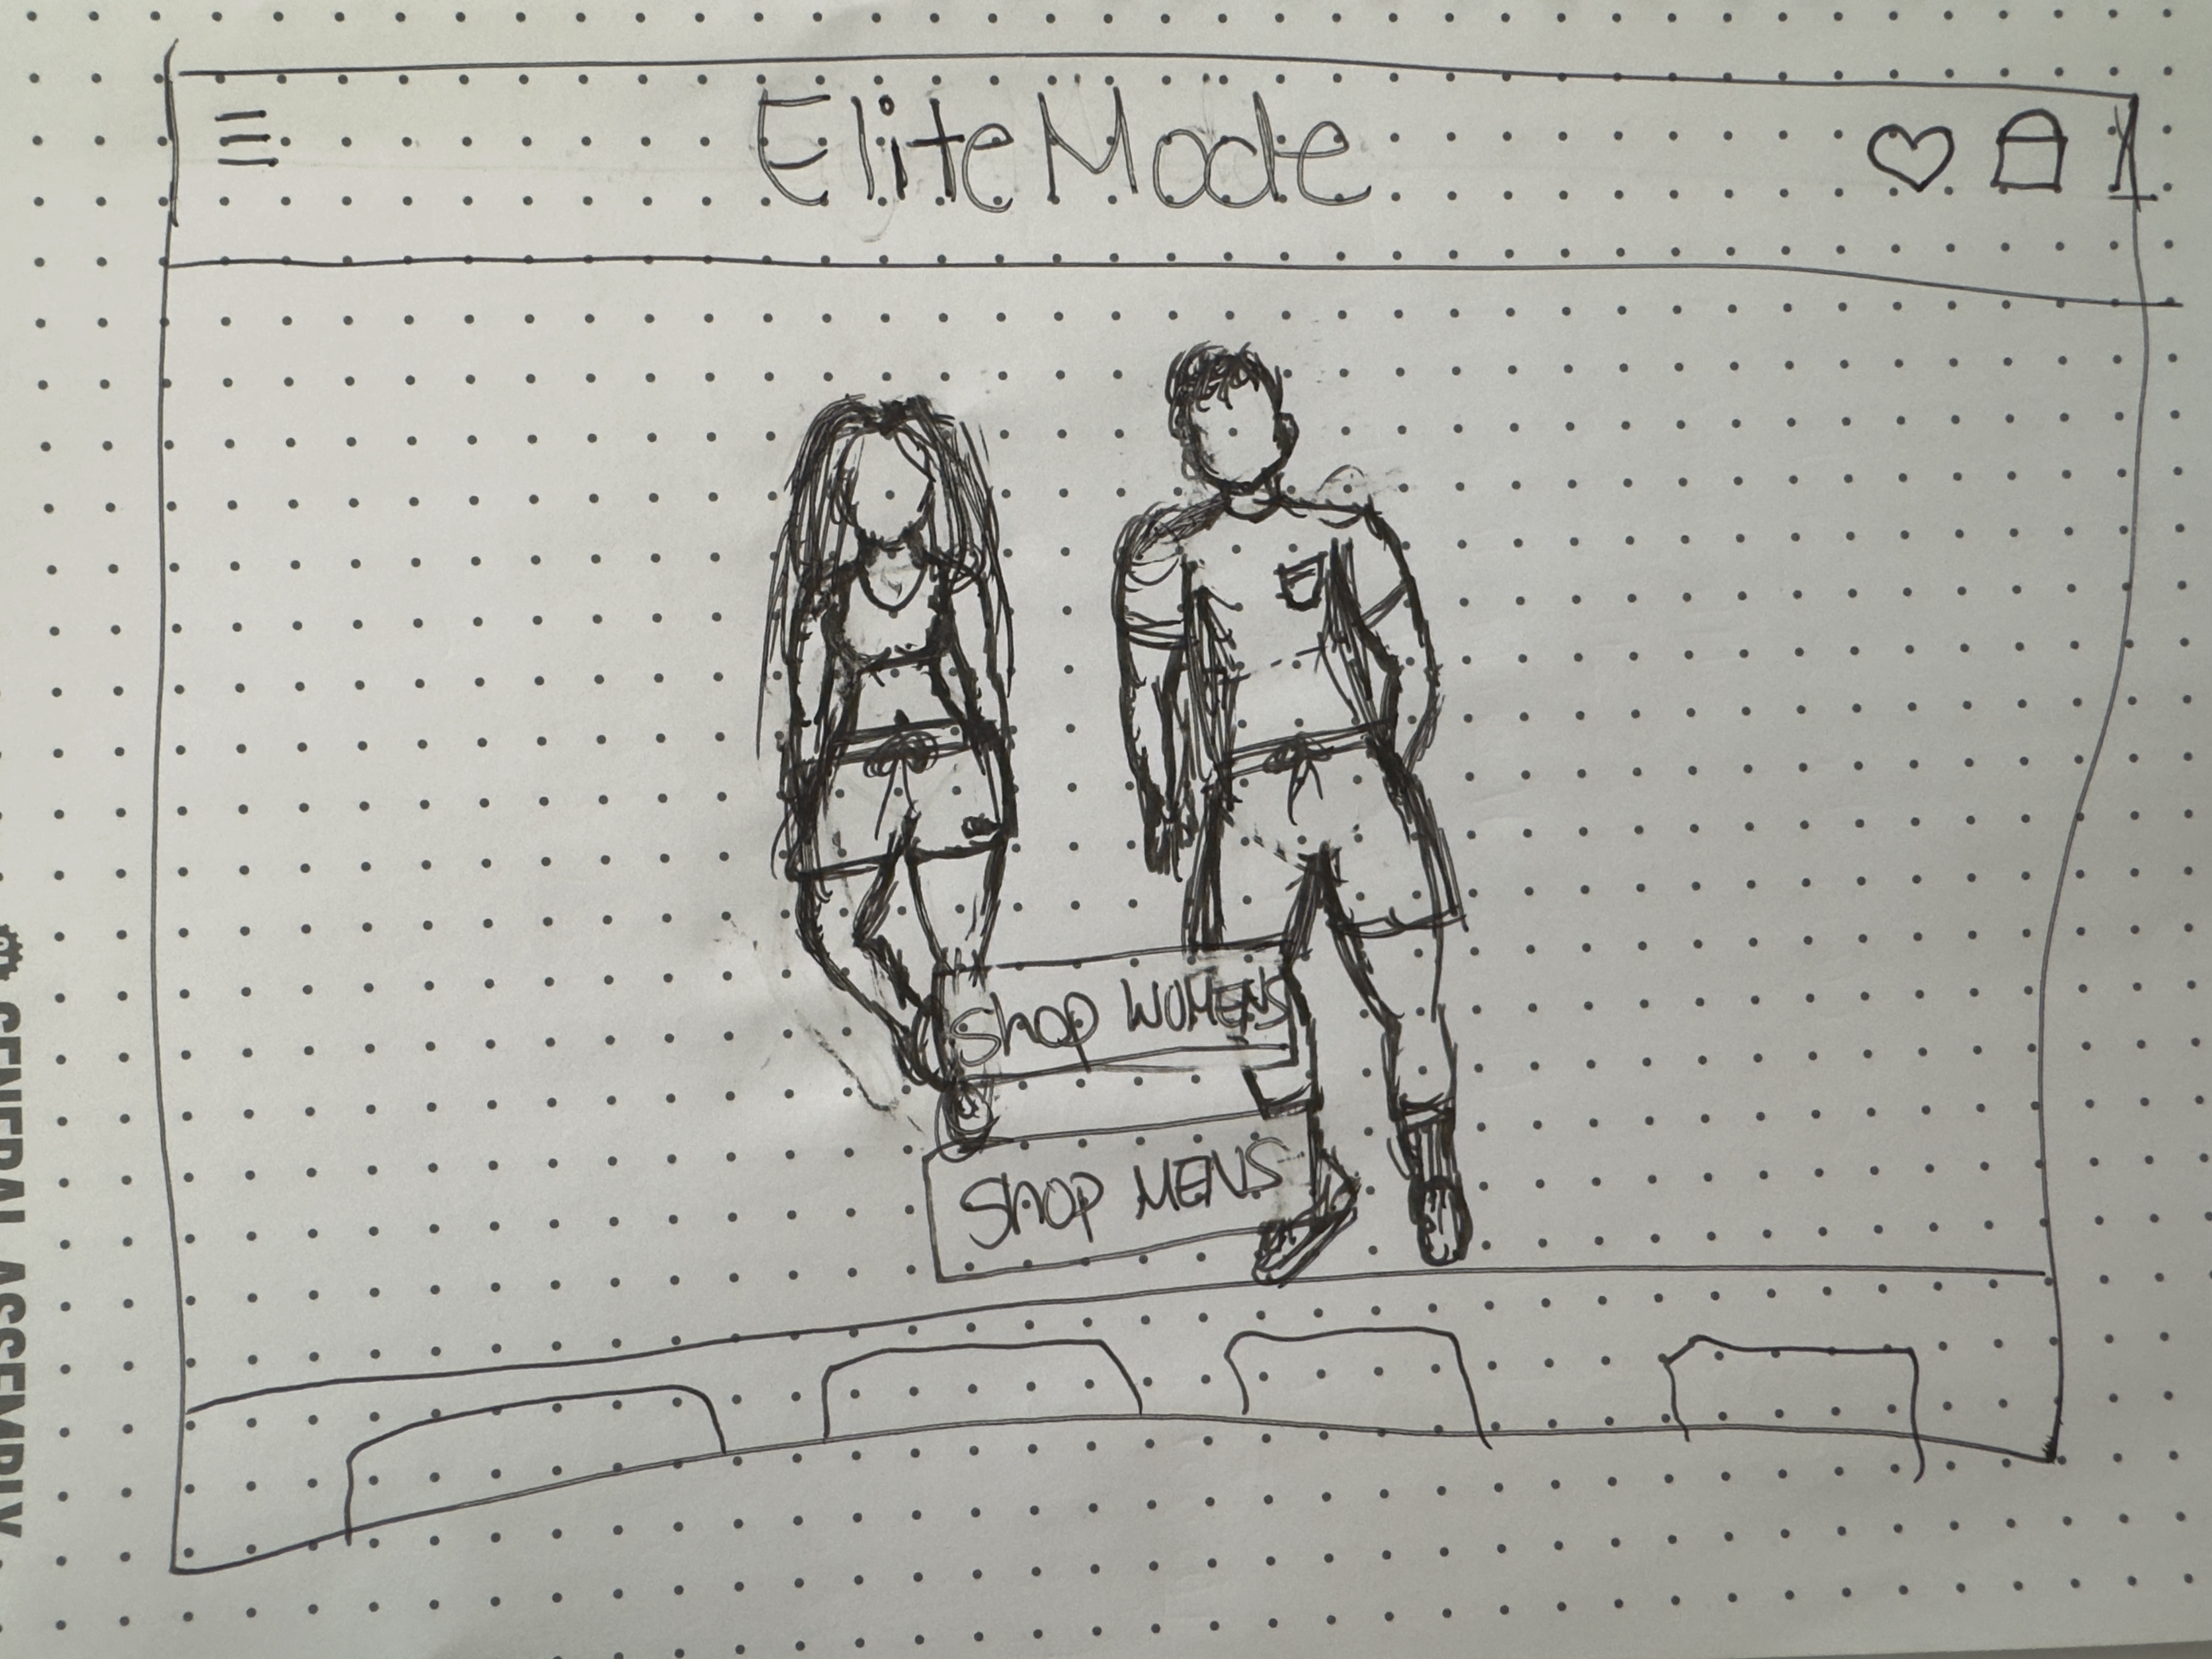 Elite Mode
Shop WOMENS
Shop MENS
GENERAL ASSEMBLY